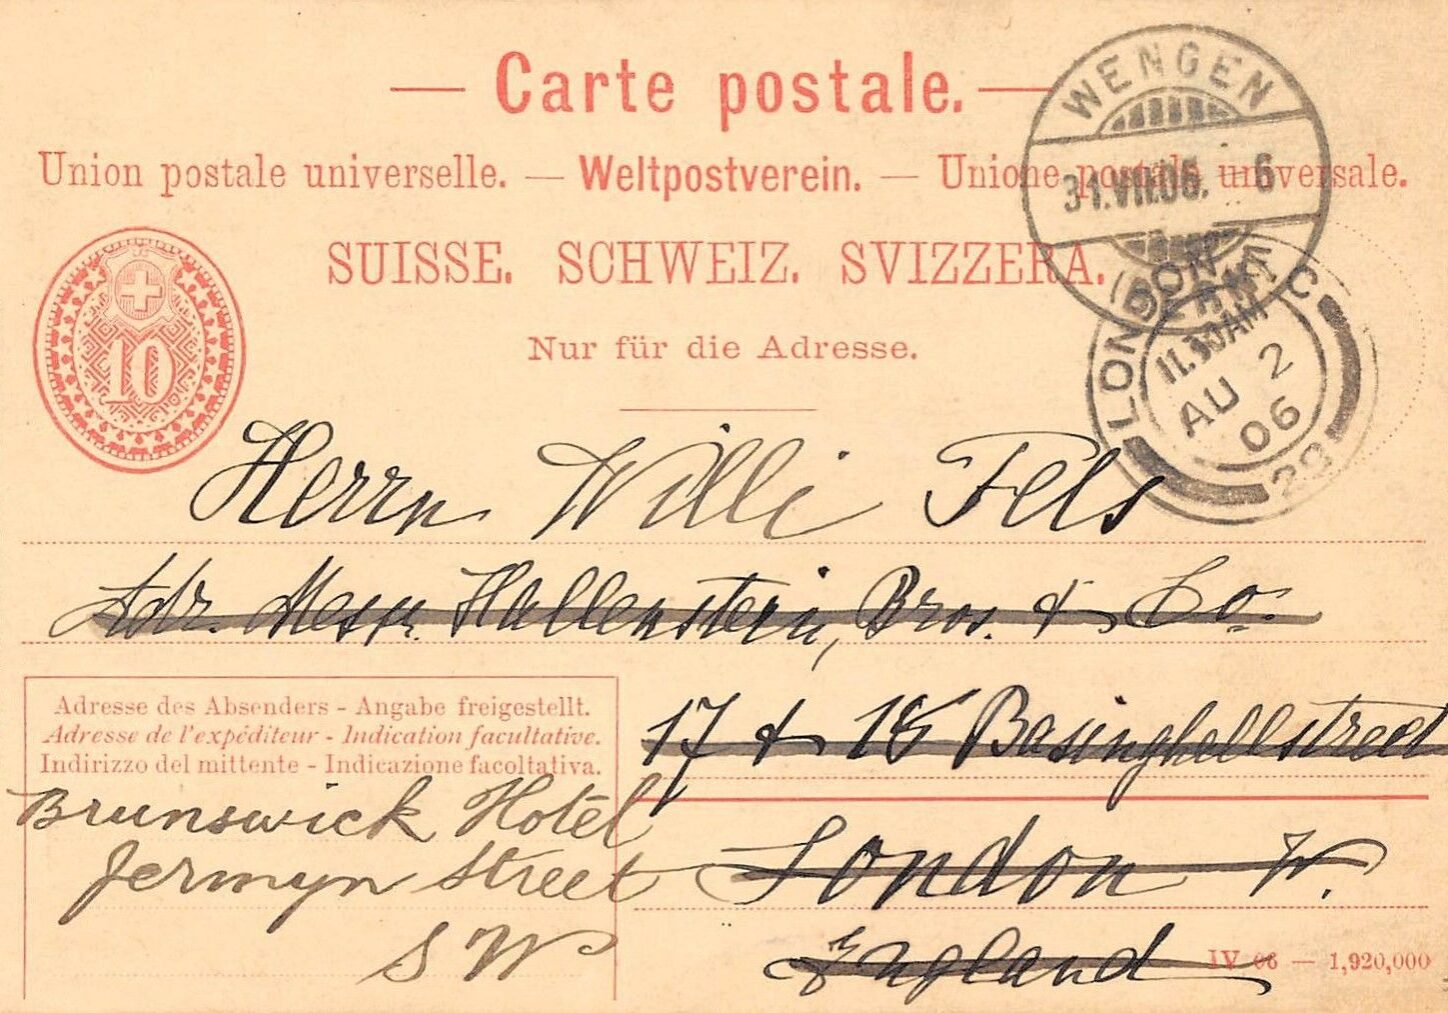 — Carte postale. —
Union postale universelle. — Weltpostverein. — Unione postale universale.
SUISSE. SCHWEIZ. SVIZZERA.
Nur für die Adresse.
10
WENGEN
31.VII.06. 6
(BERN)
LONDON E C
11.30AM
AU 2
06
29
Herrn Willi Fels
Adr. Messr. Hallenstein, Bros. & Co.
17 & 18 Basinghallstreet
London W.
England
Adresse des Absenders - Angabe freigestellt.
Adresse de l'expéditeur - Indication facultative.
Indirizzo del mittente - Indicazione facoltativa.
Brunswick Hotel
Jermyn Street
S W
IV 06 — 1,920,000